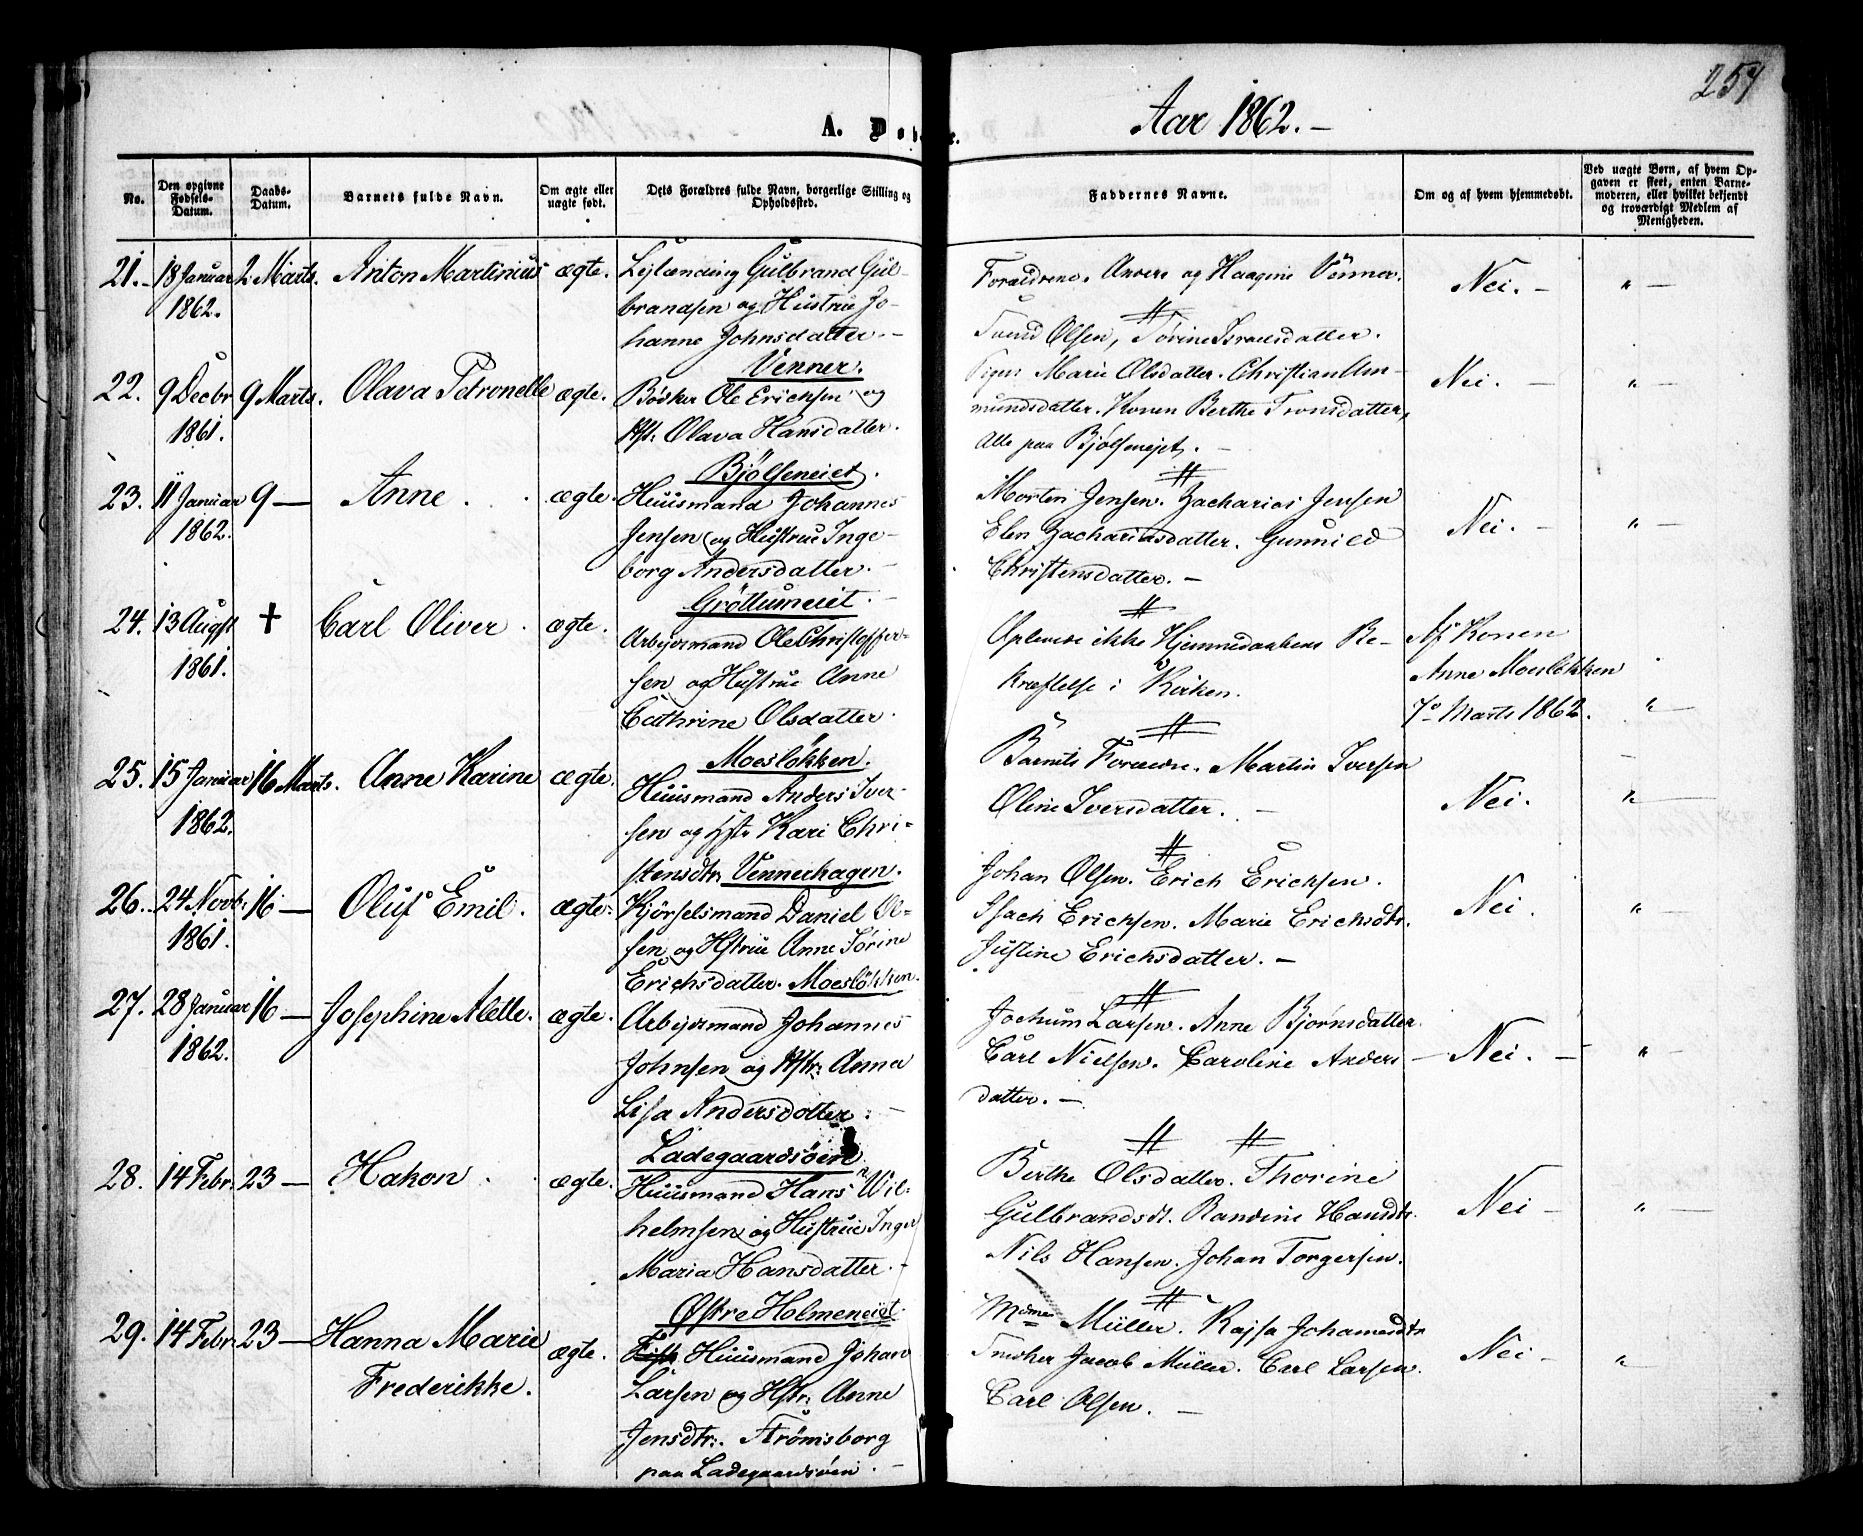 257
A. Døbte.
Aar 1862.-
No.
Den opgivne Fødsels-Datum.
Daabs-Datum.
Barnets fulde Navn.
Om ægte eller uægte født.
Dets Forældres fulde Navn, borgerlige Stilling og Opholdssted.
Faddernes Navne.
Om og af hvem hjemmedøbt.
Ved uægte Børn, af hvem Opgaven er skeet, enten Barnemoderen, eller hvilket bekjendt og troværdigt Medlem af Menigheden.
21.- 18 Januar 2 Marts. Anton Martinius ægte. Leilænding Gulbrand Gul-
1862. brandsen og Hustrue Jo-
hanne Johnsdatter.-
Venner.
Forældrene. Anders og Haagine Venner.
Svend Olsen, Sørine Israelsdatter.
Nei.- "-
22. 9 Decbr 9 Marts. Olava Petronelle ægte. Bødker Ole Erichsen og
1861. Hst: Olava Hansdatter.
Bjølseneiet.
Pigen Marie Olsdatter. Christian Am-
mundsdatter. Konen Berthe Tronsdatter,
Alle paa Bjølseneiet.-
Nei.- "-
23. 11 Januar 9 — Anne. ægte. Huusmand Johannes
1862. Jensen og Hustrue Inge-
borg Andersdatter.-
Grøttumeiet.
Morten Jensen. Zacharias Jensen
Elen Zachariasdatter. Gunnild
Christensdatter.-
Nei.- "-
24. 13 Augst † Carl Oliver. ægte. Arbeidsmand Ole Christoffer-
1861. sen og Hustrue Anne
Cathrine Olsdatter.
Moesløkken.
Oplevede ikke Hjemmedaabens Be-
kræftelse i Kirken.
Af Konen
Anne Moesløkken
7de Marts 1862. "-
25. 15 Januar 16 Marts. Anne Karine ægte. Huusmand Anders Iver-
1862. sen og Hstr Kari Chri-
stensdtr. Vennerhagen.
Barnets Forældre. Martin Iversen
Oline Iversdatter.-
Nei. "-
26. 24 Novb: 16 — Oluf Emil. ægte. Kjørselsmand Daniel Ol-
1861. sen og Hstrue Anne Sørine
Erichsdatter. Moesløkken.
Johan Olsen. Erich Erichsen.
Isach Erichsen. Marie Erichsdtr.
Justine Erichsdatter.-
Nei. "-
27. 28 Januar 16 — Josephine Alette. ægte. Arbeidsmand Johannes
1862. Johnsen og Hstr: Anna
Lisa Andersdatter.-
Ladegaardsøen
Jochum Larsen. Anne Bjørnsdatter.
Carl Nielsen. Caroline Anders-
datter.-
Nei.- "-
28. 14 Febr. 23 — Hakon. ægte. Huusmand Hans Wil-
helmsen og Hustrue Inger
Maria Hansdatter.-
Østre Holmeneiet.
Berthe Olsdatter. Thorine
Gulbrandsdt. Randine Hansdtr.
Nils Hansen. Johan Torgersen.
Nei- "-
29. 14 Febr. 23 — Hanna Marie ægte. Huusmand Johan
Frederikke. Larsen og Hstr: Anne
Jensdtr: Strømsborg
paa Ladegaardsøen.-
Mdme Müller. Kajsa Johannesdtr
Snedker Jacob Müller. Carl Larsen.
Carl Olsen.-
Nei- "